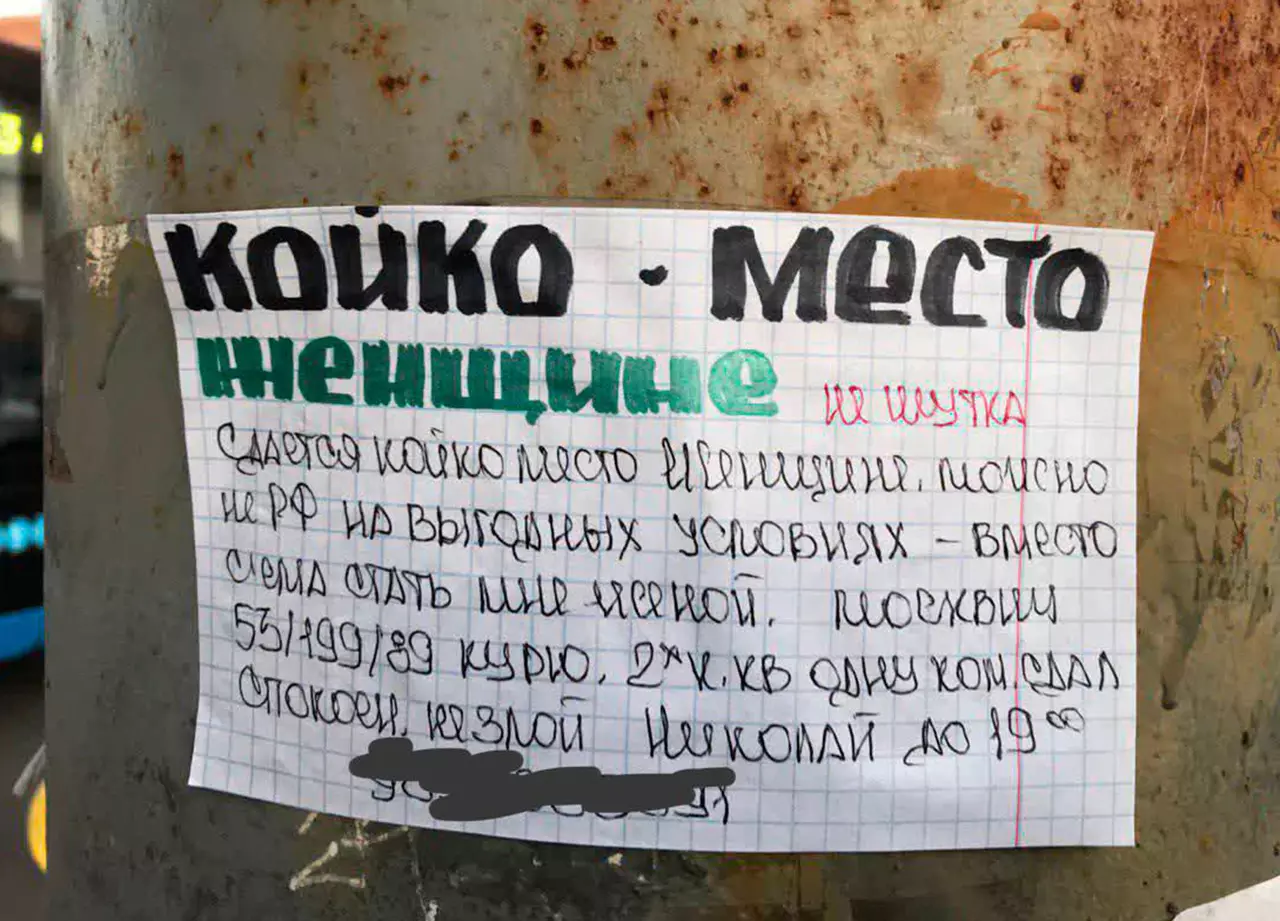 КОЙКО - МЕСТО
ЖЕНЩИНЕ НЕ ШУТКА
СДАЕТСЯ КОЙКО МЕСТО ЖЕНЩИНЕ. МОЖНО
НЕ РФ НА ВЫГОДНЫХ УСЛОВИЯХ - ВМЕСТО
СЪЕМА СТАТЬ МНЕ ЖЕНОЙ. МОСКВИЧ
53/199/89 КУРЮ. 2Х К. КВ ОДНУ КОМ. СДАЛ
СПОКОЕН, НЕ ЗЛОЙ НИКОЛАЙ ДО 19 00